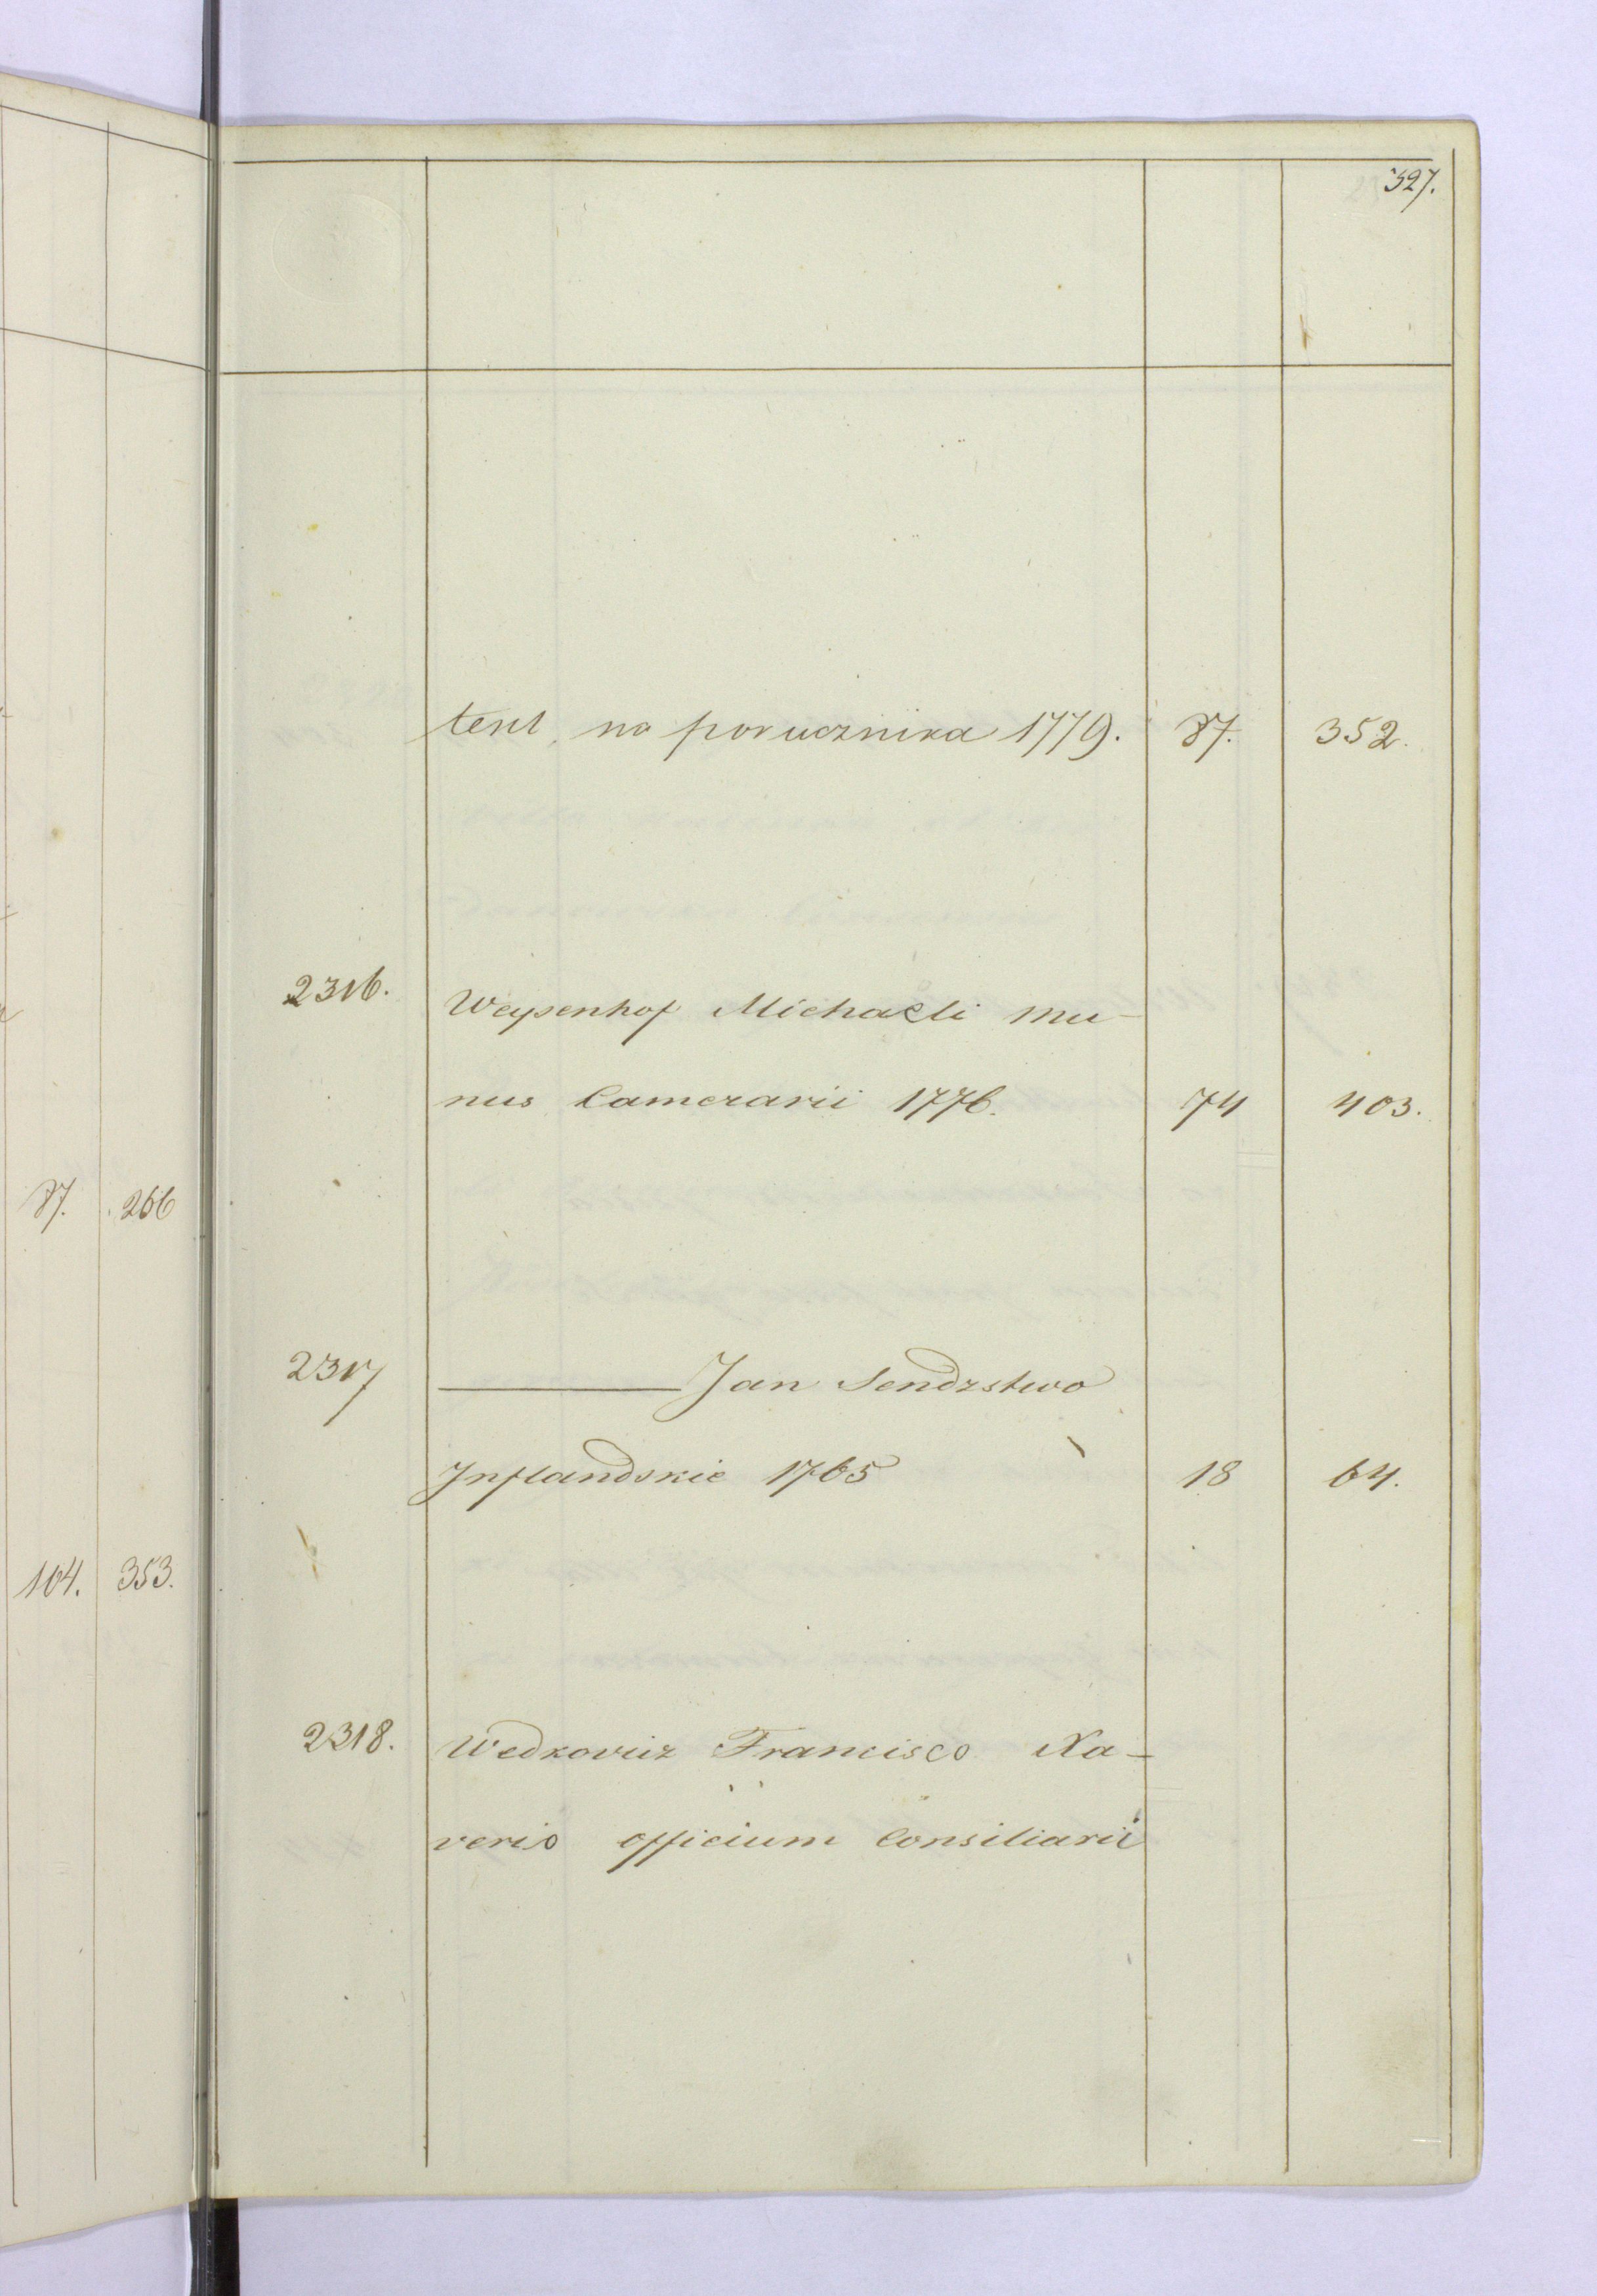 327.
tent, na porucznika 1779. 87. 352.
2316. Weysenhof Michaeli mu-
nus Camerarii 1776. 74 403.
87. 266
2317 Jan Sendzstwo
Inflandskie 1765 18 64.
104. 353.
2318. Wedkovicz Francisco Xa-
verio officium Consiliarii